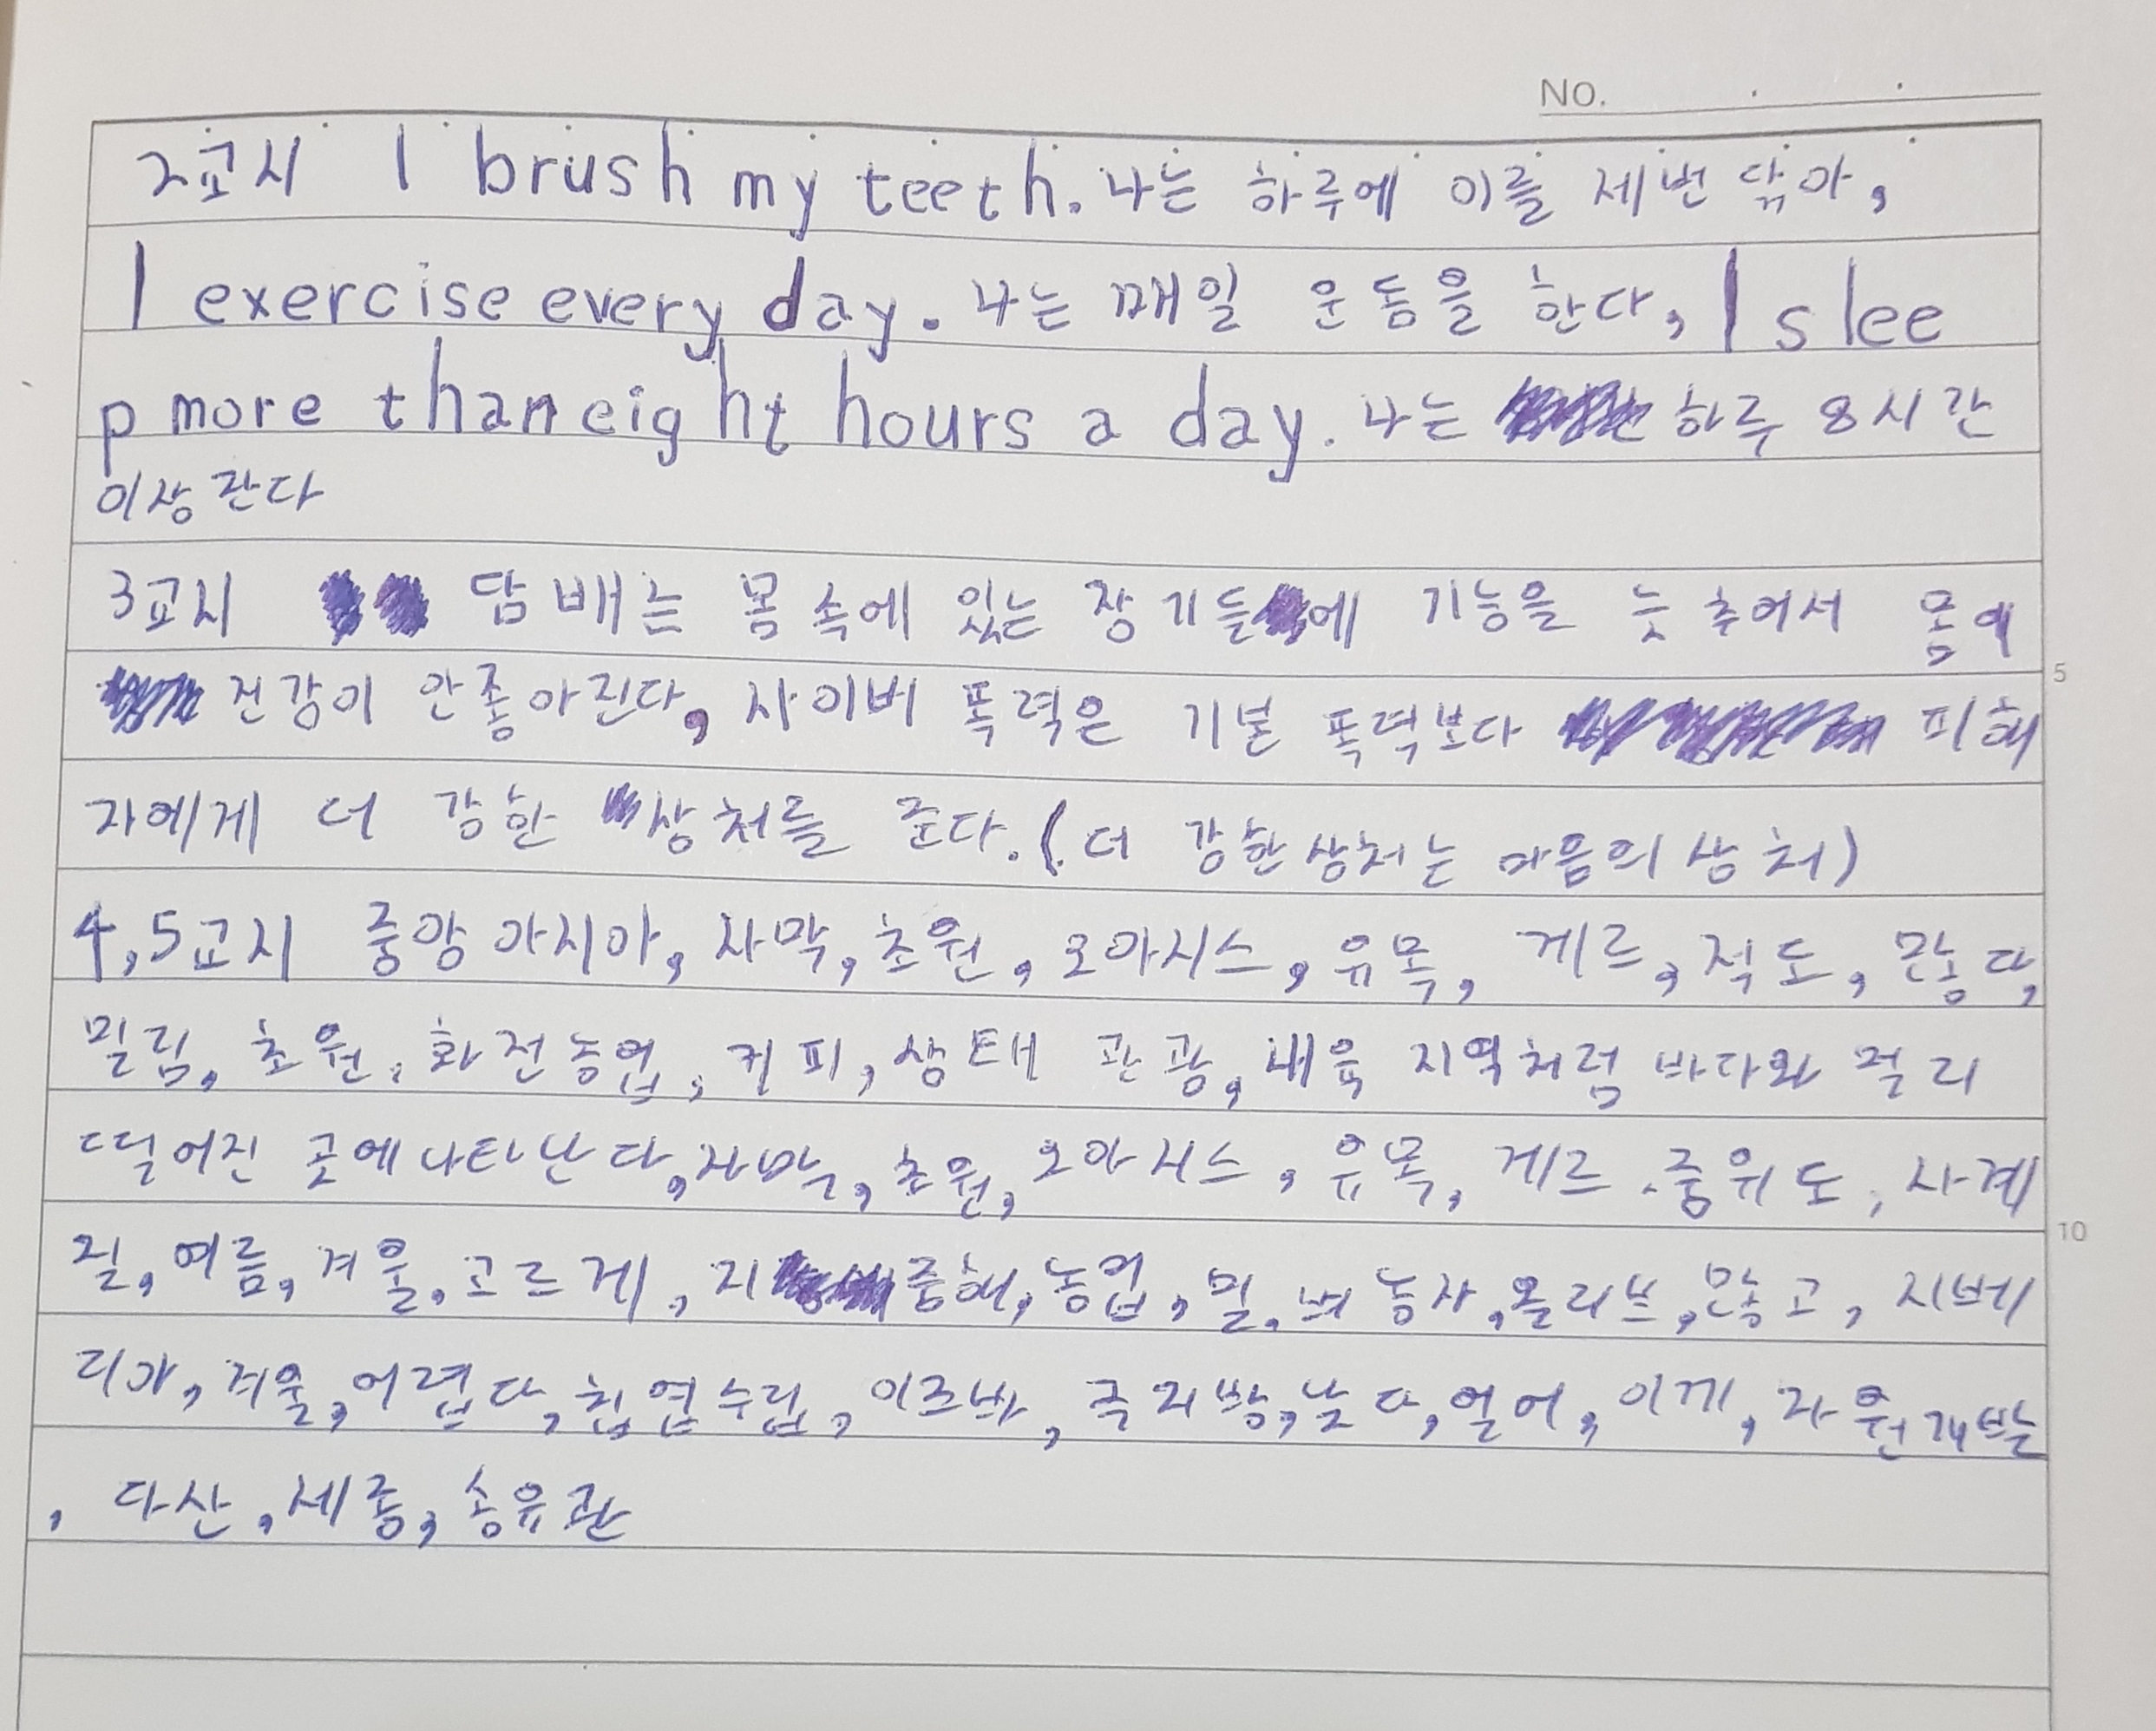 NO.
2교시 I brush my teeth. 나는 하루에 이를 세번 닦아,
I exercise every day. 나는 매일 운동을 한다, I slee
p more than eight hours a day. 나는 하루 8시간
이상 잔다
3교시 담배는 몸 속에 있는 장기들에 기능을 늦추어서 몸에
건강이 안좋아진다, 사이버 폭력은 기본 폭력보다 피해
자에게 더 강한 상처를 준다. (더 강한상처는 마음의 상처)
4,5교시 중앙 아시아, 사막, 초원, 오아시스, 유목, 게르, 적도, 많다,
5
밀림, 초원, 화전농업, 커피, 생태 관광, 내륙 지역처럼 바다와 멀리
떨어진 곳에 나타난다, 사막, 초원, 오아시스, 유목, 게르. 중위도, 사계
절, 여름, 겨울, 고르게, 지중해, 농업, 밀, 벼 농사, 올리브, 많고, 시베
10
리아, 겨울, 어렵다, 침엽수림, 이즈바, 극지방, 낮다, 얼어, 이끼, 자원개발
, 다산, 세종, 송유관